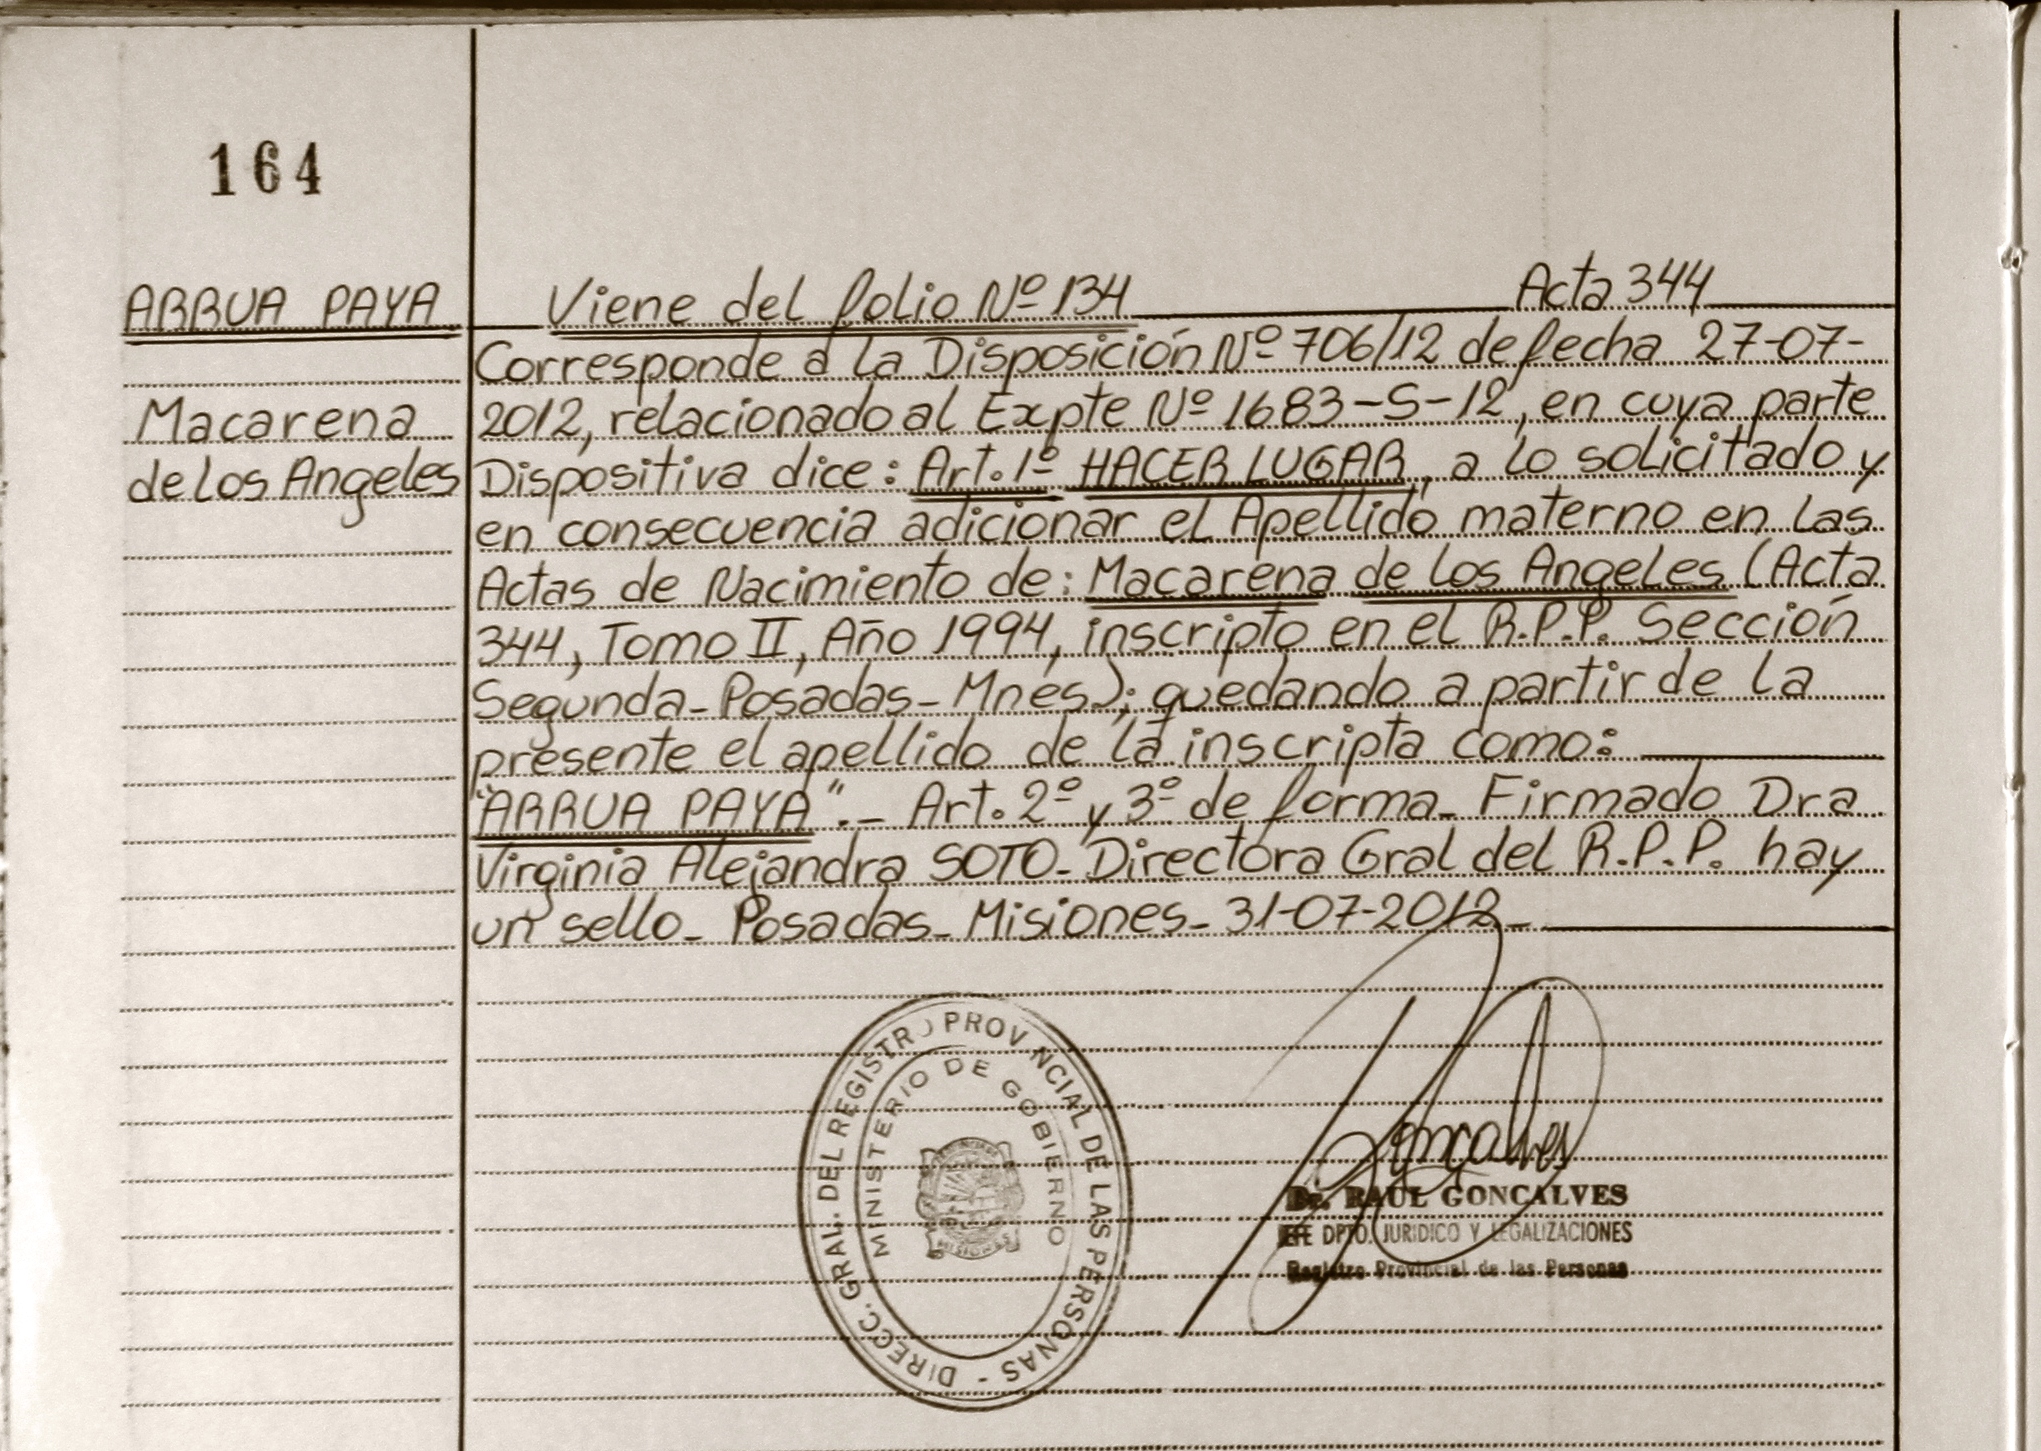 164
ARRUA PAYA
Macarena
de los Angeles
Viene del folio Nº 134 Acta 344
Corresponde a la Disposición Nº 706/12 de fecha 27-07-
2012, relacionado al Expte Nº 1683-S-12, en cuya parte
Dispositiva dice: Art. 1º HACER LUGAR, a lo solicitado y
en consecuencia adicionar el Apellido materno en las
Actas de Nacimiento de: Macarena de los Angeles (Acta
344, Tomo II, Año 1994, inscripto en el R.P.P. Sección
Segunda - Posadas - Mnes); quedando a partir de la
presente el apellido de la inscripta como:
"ARRUA PAYA".- Art. 2º y 3º de forma - Firmado Dra
Virginia Alejandra SOTO - Directora Gral del R.P.P. hay
un sello - Posadas - Misiones - 31-07-2012 -
DIRECC. GRAL. DEL REGISTRO PROVINCIAL DE LAS PERSONAS -
MINISTERIO DE GOBIERNO
MISIONES
Goncalves
Dr. RAUL GONCALVES
JEFE DPTO. JURIDICO Y LEGALIZACIONES
Registro Provincial de las Personas